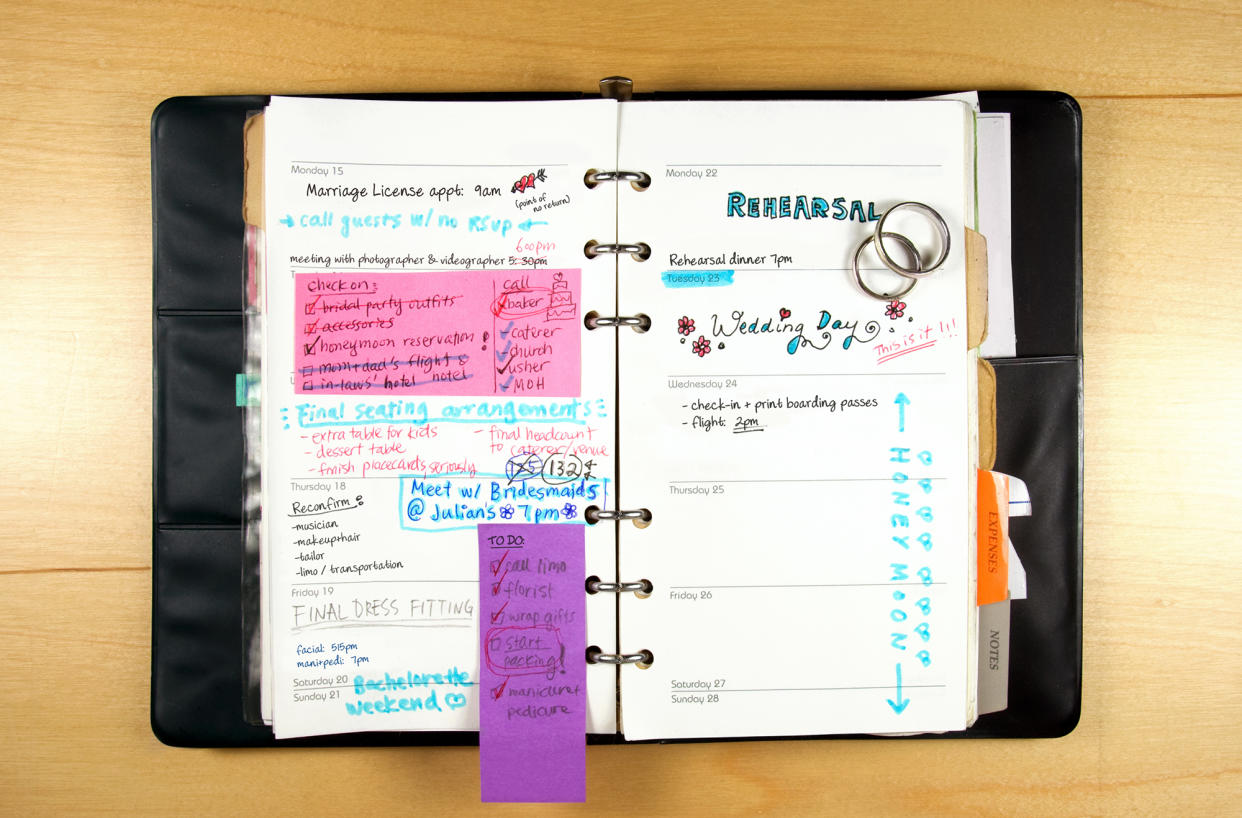 Monday 15
Marriage License appt: 9am
(point of
no return)
call guests w/ no RSVP
6:00pm
meeting with photographer & videographer 5:30pm
check on:
bridal party outfits
accessories
honeymoon reservation
mom+dad's flight &
in-laws' hotel hotel
call
baker
caterer
church
usher
MOH
Final seating arrangements
- extra table for kids
- dessert table
- finish placecards, seriously
- final headcount
to caterer/venue
125 132
Thursday 18
Meet w/ Bridesmaids
@ Julian's 7pm
Reconfirm:
-musician
-makeup+hair
-tailor
-limo / transportation
Friday 19
FINAL DRESS FITTING
facial: 515pm
mani+pedi: 7pm
Saturday 20
Sunday 21
Bachelorette
Weekend
TO DO:
call limo
florist
wrap gifts
start
packing!
manicure+
pedicure
Monday 22
REHEARSAL
Rehearsal dinner 7pm
Tuesday 23
Wedding Day
This is it !!!
Wednesday 24
- check-in + print boarding passes
- flight: 2pm
HONEYMOON
Thursday 25
Friday 26
Saturday 27
Sunday 28
EXPENSES
NOTES